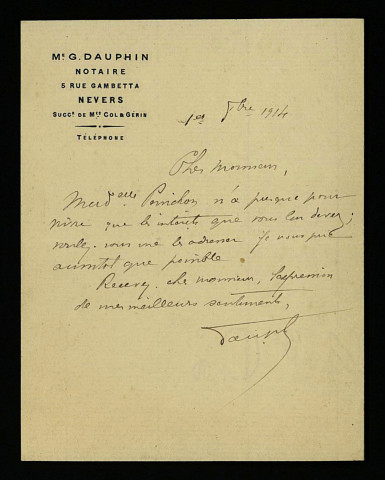 Me G. DAUPHIN
NOTAIRE
5 RUE GAMBETTA
NEVERS
SUCCr. DE Mes COL & GÉRIN
TÉLÉPHONE
1er 9bre 1914
Cher Monsieur,
n'a presque pour
vivre que les intérêts que vous lui devez ;
voulez-vous me les adresser je vous prie
aussitôt que possible
Recevez, cher monsieur, l'expression
de mes meilleurs sentiments,
Dauphin